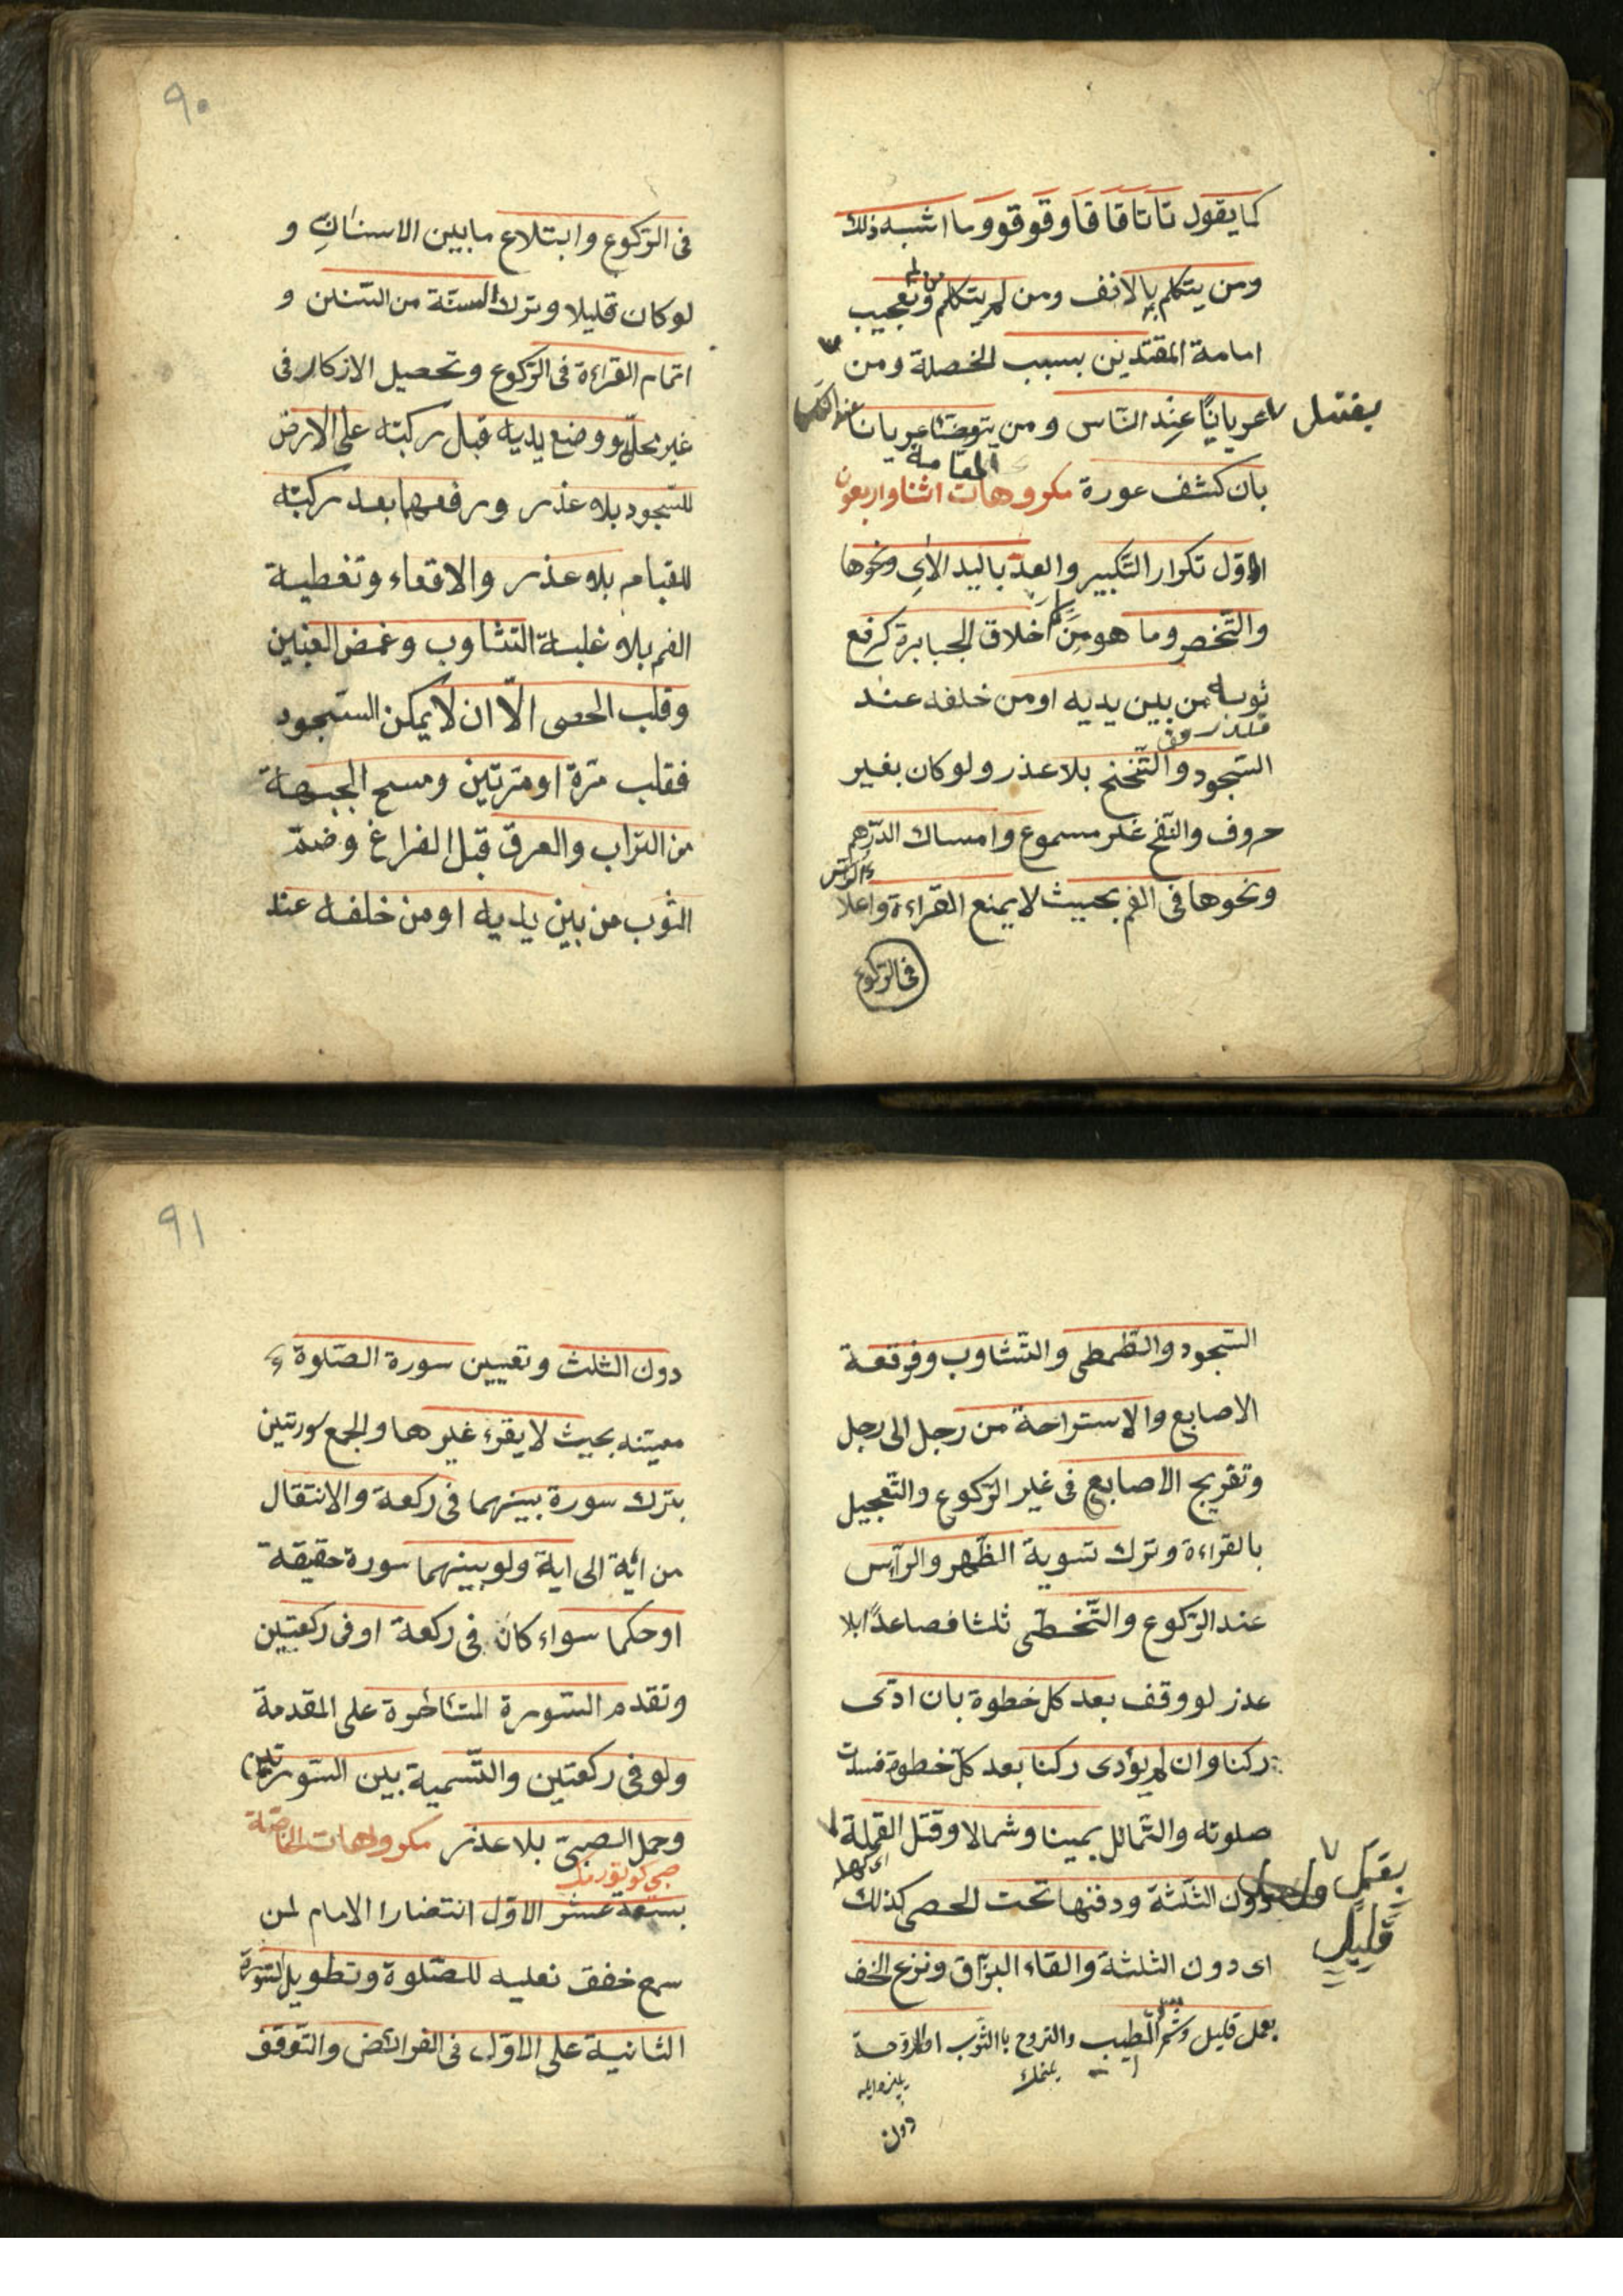 كما يقول تاتاقاقا وقوقوو ما اشبه ذلك
ومن يتكلم بالانف ومن لم يتكلم وتعجيب
امامة المقتدين بسبب الخصلة ومن
يغتسل عريانا عند النّاس ومن يتوضّأ عريانا عند النّاس
بان كشف عورة مكروهات العامة اثنا واربعون
الاوّل تكرار التّكبير والعدّ باليد الاي ونحوها
والتّخصر وما هو من اخلاق الجبابرة كرفع
ثوبه من بين يديه او من خلفه عند
السّجود والتّنحنح بلا عذر ولو كان بغير
حروف والنّفخ غير مسموع وامساك الدّرهم
ونحوها في الفم بحيث لا يمنع القراءة واعلا الرّأس
في الرّكوع
٩٠
في الرّكوع وابتلاع ما بين الاسنان و
لو كان قليلا وترك السنّة من السّنن و
اتمام القراءة في الرّكوع وتحصيل الازكار في
غير محلّ ووضع يديه قبل ركبته على الارض
للسّجود بلا عذر ورفعهما بعد ركبته
للقيام بلا عذر والاقعاء وتغطية
الفم بلا غلبة التّثاوب وغمض العينين
وقلب الحصى الّا ان لا يمكن السّجود
فقلب مرّة او مرّتين ومسح الجبهة
من التّراب والعرق قبل الفراغ وضمّ
الثّوب من بين يديه او من خلفه عند
السّجود والتّمطى والتّثاوب وفرقعة
الاصابع والاستراحة من رجل الى رجل
وتفريج الاصابع في غير الرّكوع والتّعجيل
بالقراءة وترك تسوية الظّهر والرّأس
عند الرّكوع والتّخطّى ثلثا فصاعدًا بلا
عذر لو وقف بعد كل خطوة بان ادّى
ركنا وان لم يؤدى ركنا بعد كلّ خطوة فسدت
صلوته والتّمائل يمينا وشمالا وقتل القملة
دون الثّلثة ودفنها تحت الحصى كذلك
بعمل قليل
اى دون الثّلثة والقاء البزّاق ونزع الخف
بعمل قليل وشمّ الطيب والتروح باالثّوب او المروحة
دون
٩١
دون الثلث وتعيين سورة الصّلوة
معيّنه بحيث لا يقرء غيرها والجمع سورتين
بترك سورة بينهما في ركعة والانتقال
من اية الى اية ولو بينهما سورة حقيقة
او حكما سواء كان في ركعة او في ركعتين
وتقدم السّورة المتأخرة على المقدمة
ولو في ركعتين والتّسمية بين السّورتين
وحمل الصبىّ بلا عذر مكروهات الخاصّة
بسبعة عشر الاوّل انتضارا الامام لمن
سمع خفق نعليه للصّلوة وتطويل السّورة
الثانية على الاوّل في الفرائض والتّوقف